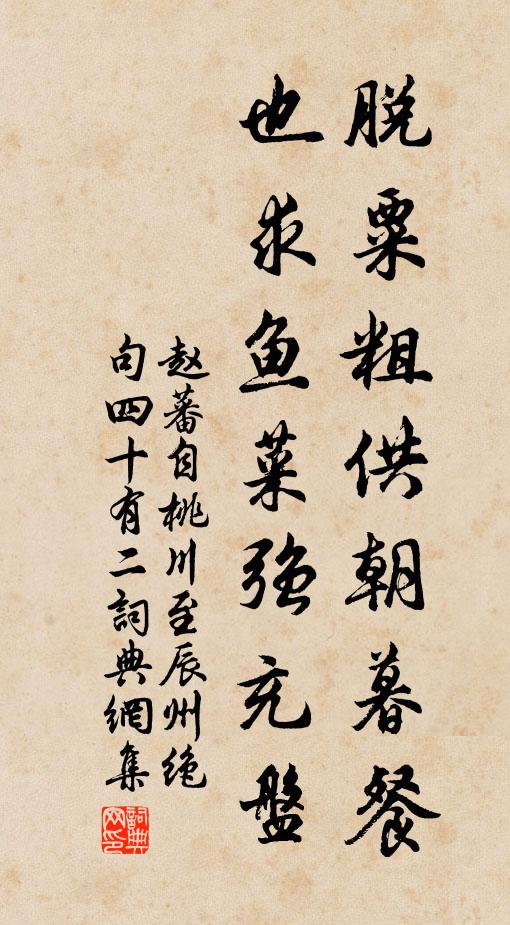 脱粟粗供朝暮餐
也求鱼菜強充盤
赵蕃自桃川至辰州绝
句四十有二詞典網集
詞典
网印